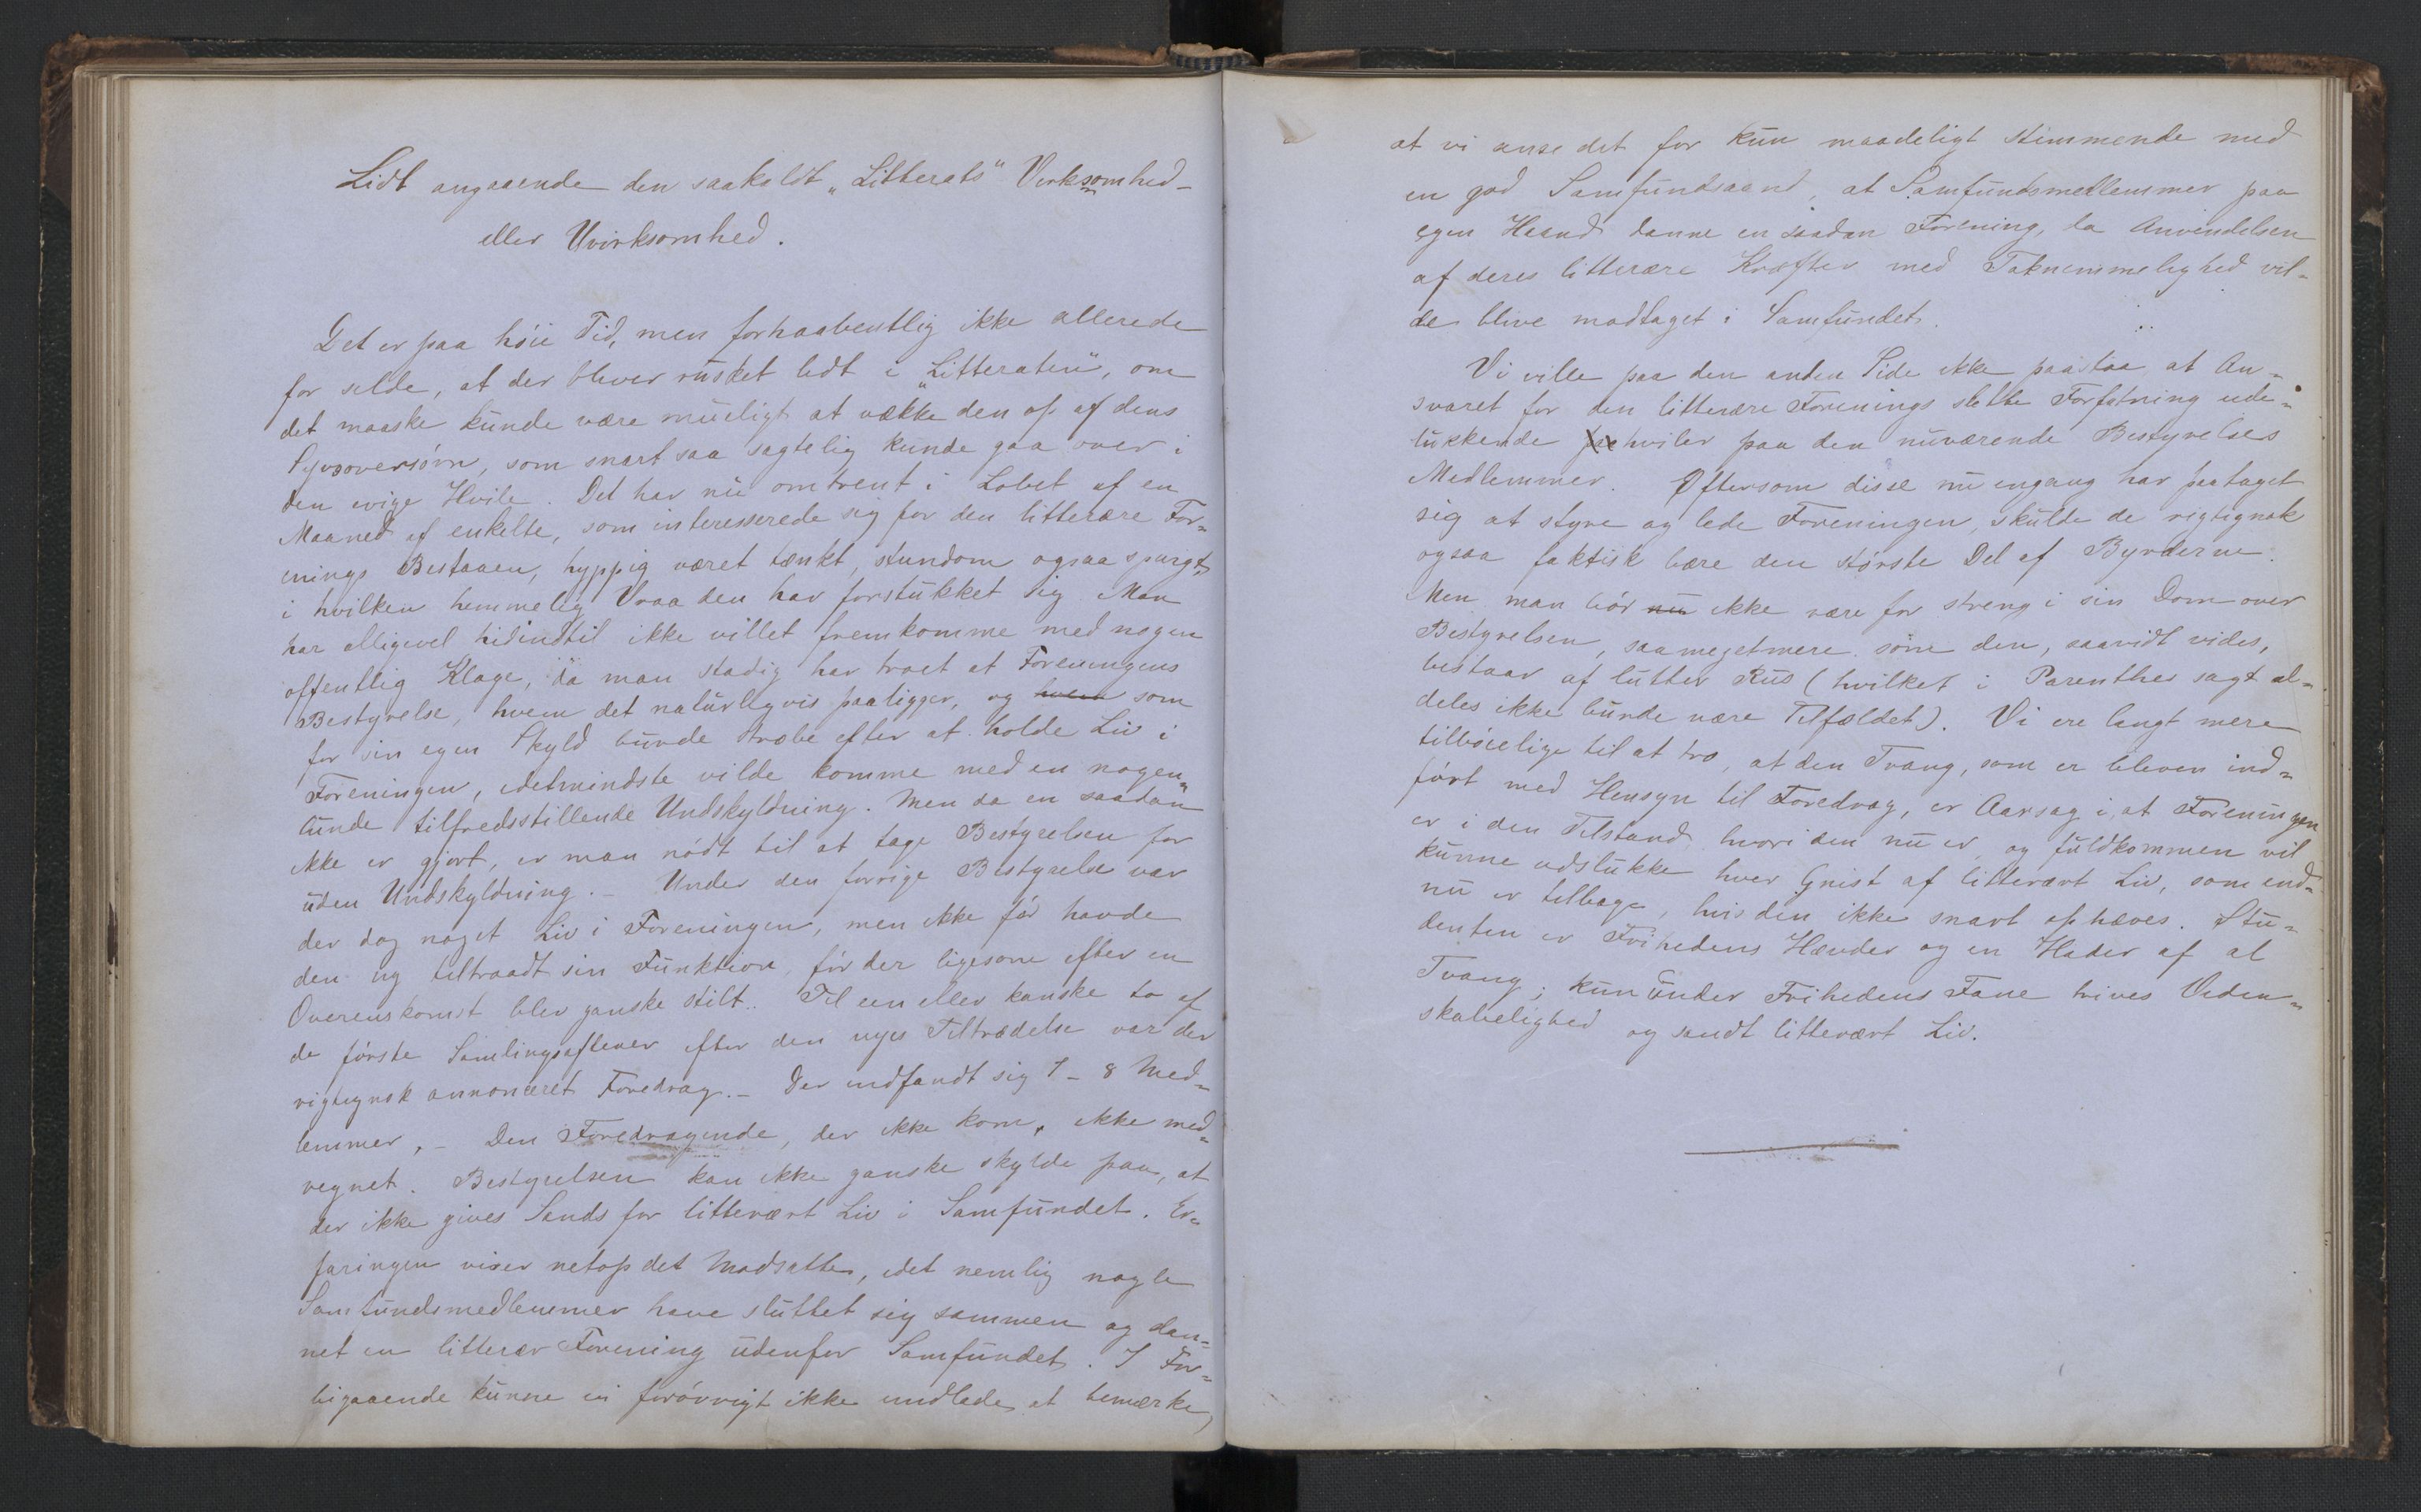 Lidt angaaende den saakaldt „Litterats" Virksomhed-
eller Uvirksomhed.
Det er paa höie Tid, men forhaabentlig ikke allerede
for silde, at der bliver rusket lidt i „Litteraten", om
det maaske kunde være mueligt at vække den op af dens
Syvsoversövn, som snart saa sagtelig kunde gaa over i
den evige Hvile. Det har nu omtrent i Löbet af en
Maaned af enkelte, som interesserede sig for den litterære For-
enings Bestaaen, hyppig været tænkt, stundom ogsaa spurgt,
i hvilken hemmelig Vraa den har forstukket sig. Man
har alligevel hidindtil ikke villet fremkomme med nogen
offentlig Klage, da man stadig har troet at Foreningens
Bestyrelse, hvem det naturligvis paaligger, og hvem som
for sin egen Skyld burde stræbe efter at holde Liv i
Foreningen, idetmindste vilde komme med en nogen-
lunde tilfredsstillende Undskyldning. Men da en saadan
ikke er gjort, er man nödt til at tage Bestyrelsen for
uden Undskyldning. – Under den forrige Bestyrelse var
der dog noget Liv i Foreningen, men ikke för havde
den ny tiltraadt sin Funktion, för der ligesom efter en
Overenskomst blev ganske stilt. Til een eller kanske to af
de förste Samlingsaftener efter den nyes Tiltrædelse var der
rigtignok annonceret Foredrag. – Der indfandt sig 7 – 8 Med-
lemmer, – Den Foredragende, der ikke kom, ikke med-
regnet. Bestyrelsen kan ikke ganske skylde paa, at
der ikke gives Sands for litterært Liv i Samfundet. Er-
faringen viser netop det Modsatte, idet nemlig nogle
Samfundsmedlemmer have sluttet sig sammen og dan-
net en litterær Forening udenfor Samfundet. I For-
bigaaende kunne vi forövrigt ikke undlade at bemærke,
at vi anse det for kun maadeligt stemmende med
en god Samfundsaand, at Samfundsmedlemmer paa
egen Haand danne en saadan Forening, da Anvendelsen
af deres litterære Kræfter med Taknemmelighed vil-
de blive modtaget i Samfundet.
Vi ville paa den anden Side ikke paastaa at An-
svaret for den litterære Forenings slette Forfatning ude-
lukkende hviler paa den nuværende Bestyrelses
Medlemmer. Eftersom disse nu engang har paataget
sig at styre og lede Foreningen, skulde de rigtignok
ogsaa faktisk bære den störste Del af Byrderne.
Men man bör nu ikke være for streng i sin Dom over
Bestyrelsen, saamegetmere som den, saavidt vides,
bestaar af lutter Rus (hvilket i Parenthes sagt al-
deles ikke burde være Tilfældet). Vi ere langt mere
tilböielige til at tro, at den Tvang, som er bleven ind-
fört med Hensyn til Foredrag, er Aarsag i, at Foreningen
er i den Tilstand hvori den nu er, og fuldkommen vil
kunne udslukke hver Gnist af litterært Liv, som end-
nu er tilbage, hvis den ikke snart ophæves. Stu-
denten er Frihedens Hævder og en Hader af al
Tvang; kun under Frihedens Fane trives Viden-
skabelighed og sandt litterært Liv.